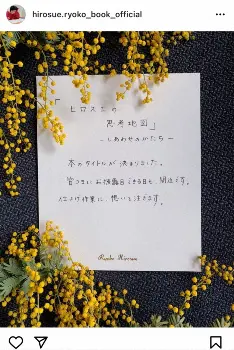 hirosue.ryoko_book_official
「ヒロスエの
思考地図」
ーしあわせのかたちー
本のタイトルが決まりました。
皆さまにお披露目できる日も、間近です。
仕上げ作業に、想いを注ぎます。
Ryoko Hirosue